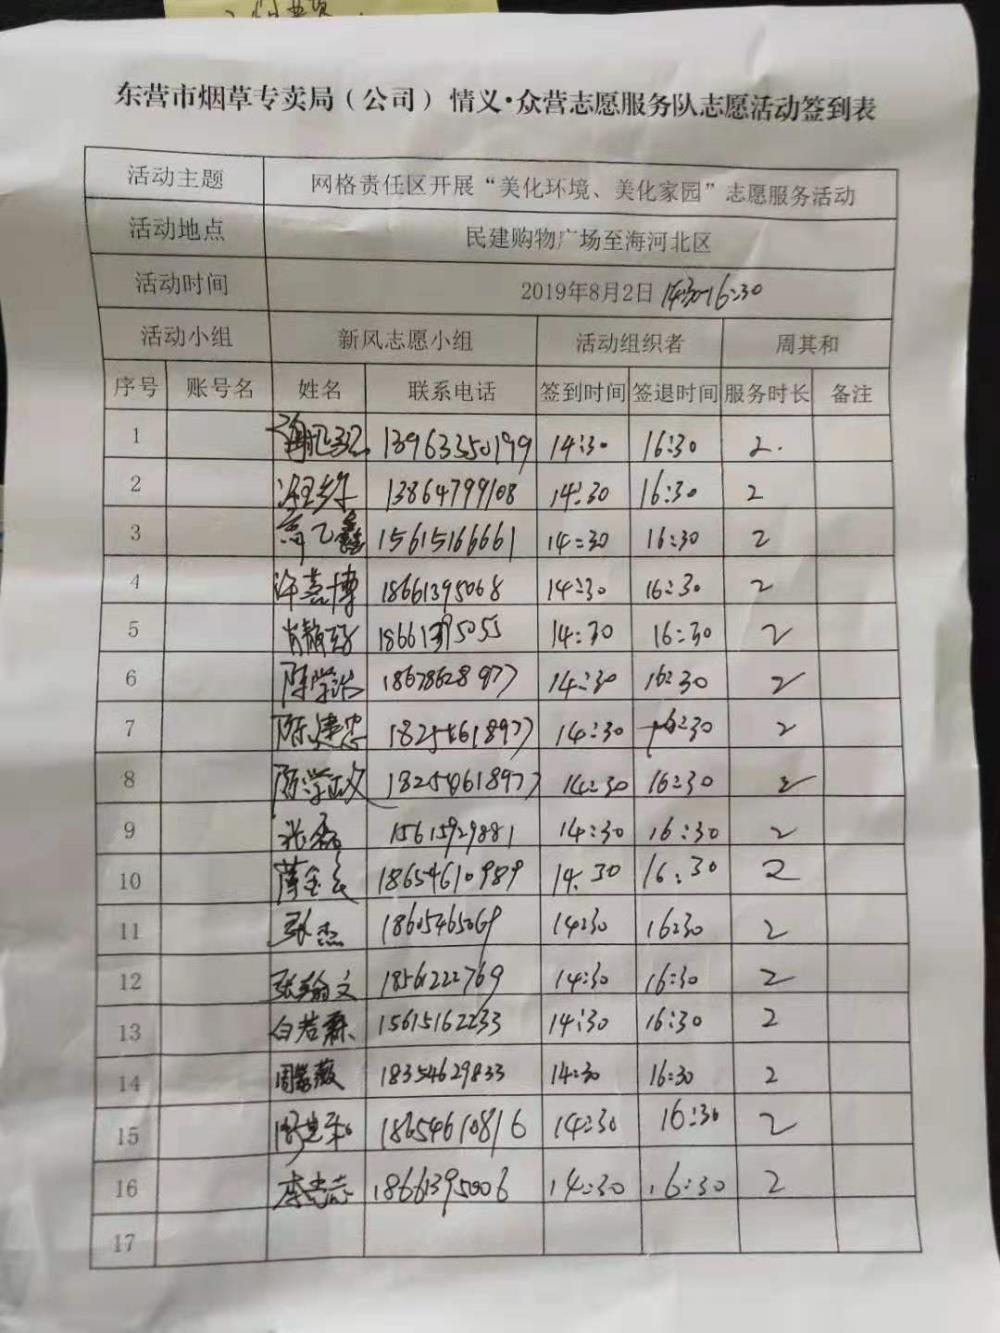 东营市烟草专卖局（公司）情义·众营志愿服务队志愿活动签到表
活动主题 网格责任区开展“美化环境、美化家园”志愿服务活动
活动地点 民建购物广场至海河北区
活动时间 2019年8月2日 14:30-16:30
活动小组 新风志愿小组 活动组织者 周其和
序号 账号名 姓名 联系电话 签到时间 签退时间 服务时长 备注
1 13963350199 14:30 16:30 2.
2 13864799108 14:30 16:30 2
3 15615166661 14:30 16:30 2
4 18661395068 14:30 16:30 2
5 18661395055 14:30 16:30 2
6 18678628977 14:30 16:30 2
7 陈建忠 14:30 16:30 2
8 陈学政 14:30 16:30 2
9 张磊 15615929881 14:30 16:30 2
10 18654610989 14:30 16:30 2
11 张杰 18605465069 14:30 16:30 2
12 张翰文 18561222769 14:30 16:30 2
13 白若霖 15615162233 14:30 16:30 2
14 周紫薇 18354629833 14:30 16:30 2
15 周其和 18654610816 14:30 16:30 2
16 18661395006 14:30 16:30 2
17